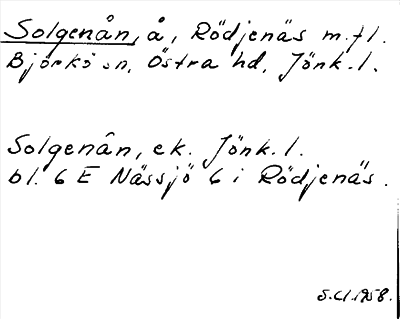 Solgenån, å, Rödjenäs m.fl.
Björkö sn, Östra hd, Jönk.l.
Solgenån, ek. Jönk.l.
bl. 6 E Nässjö 6 i Rödjenäs.
1958.